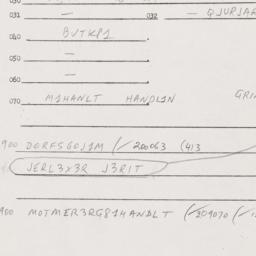 030
031 — 032 — QJURJAR
040 BUTKP1
050 —
060 —
070 M1HANLT HANDL1N GRI
900 DORFSGOJ1M (/200063 (413
JERL3X3R J3RIT
900 MOTMER3RG814ANDLT (/209070 (/